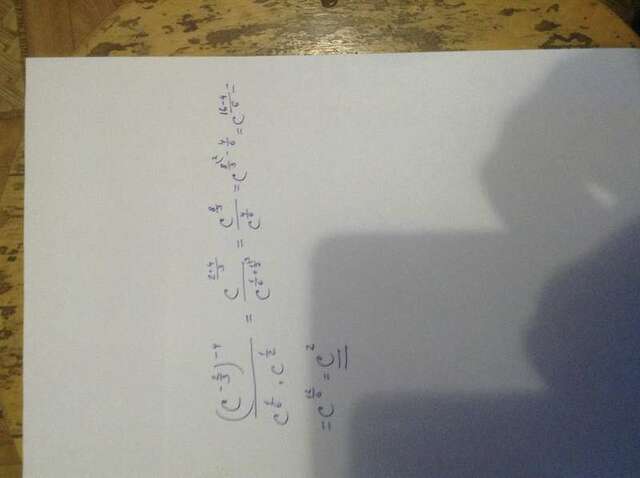 (c^{-\frac{2}{3}})^{-4} / (c^{\frac{1}{6}} · c^{\frac{1}{2}}) = c^{\frac{2·4}{3}} / c^{\frac{1}{6}+\frac{1}{2}^{\backslash 3}} = c^{\frac{8}{3}} / c^{\frac{4}{6}} = c^{\frac{8}{3}^{\backslash 2} - \frac{4}{6}} = c^{\frac{16-4}{6}} =
= c^{\frac{12}{6}} = c^{2}